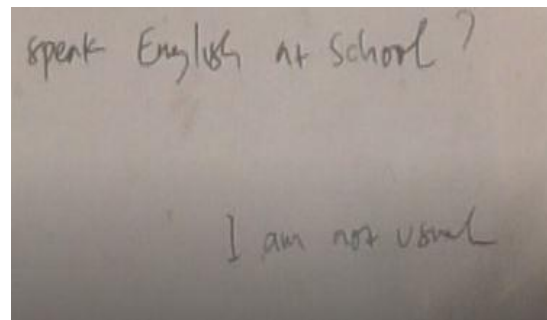 speak English at School?
I am not usual